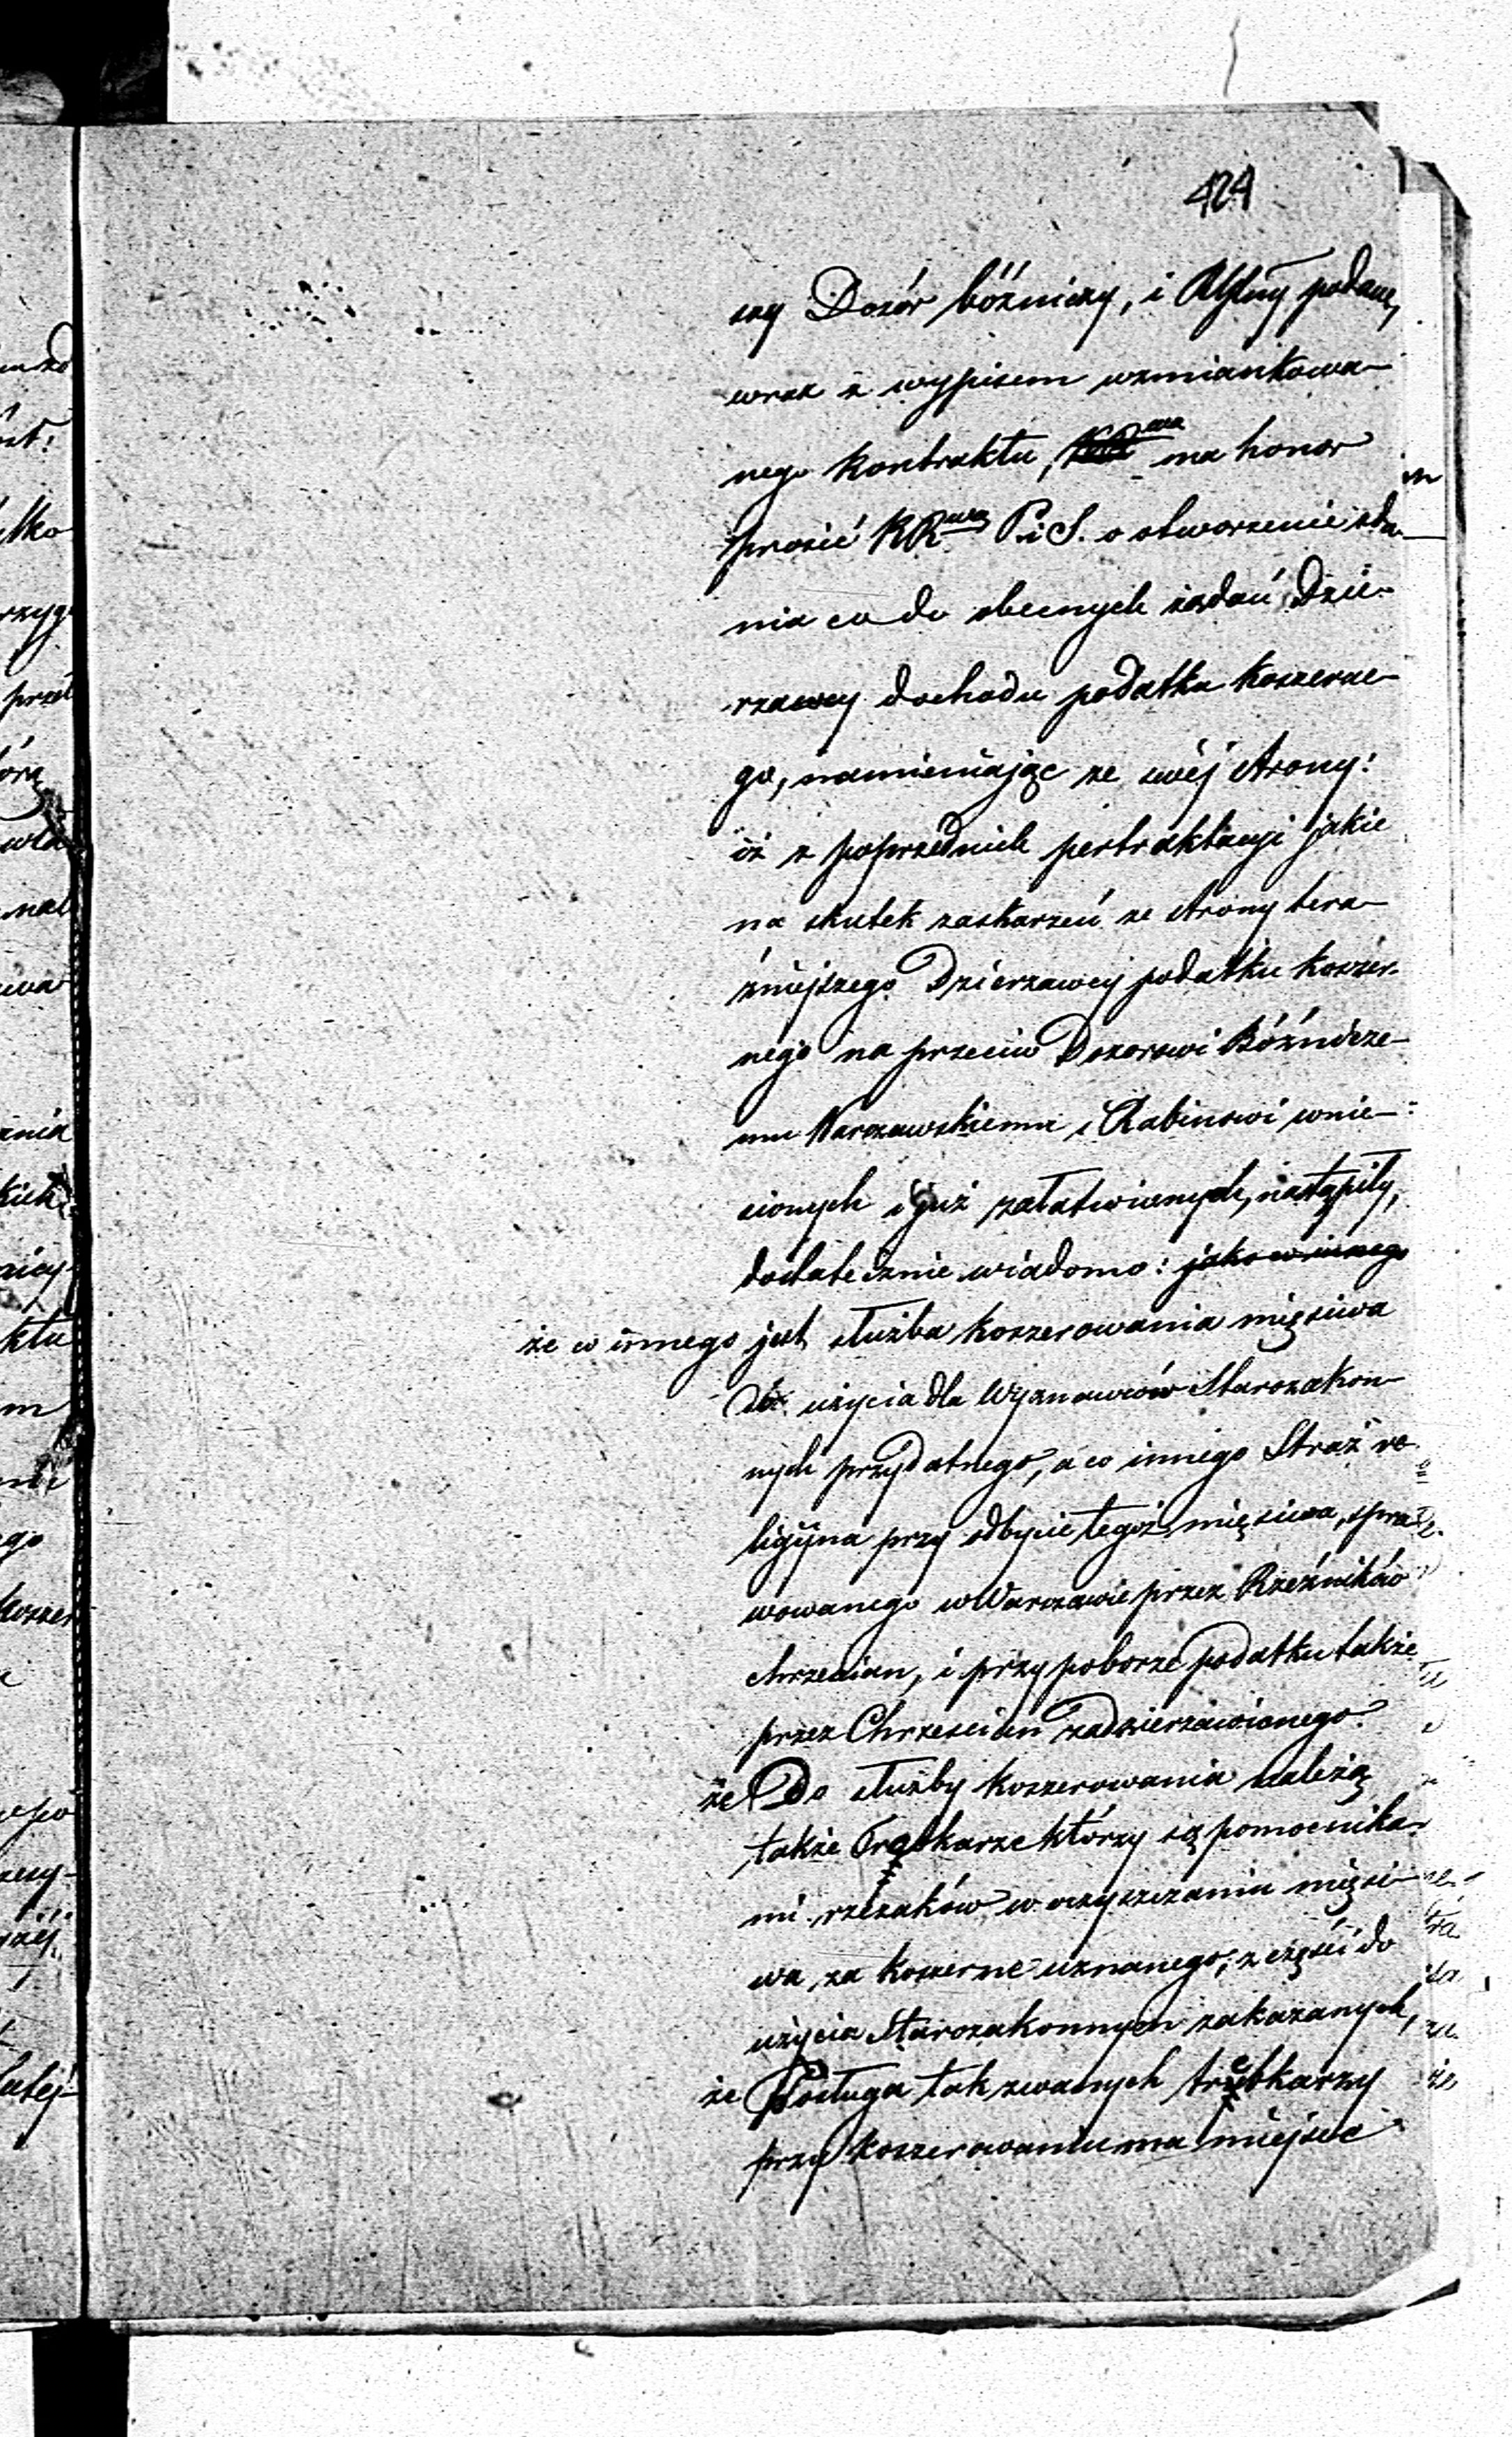 424
szy Dozór bóźniczy, i podane,
wraz z wypisem wzmiankowa-
nego kontraktu, ma honor
prosić KR P. i S. o otworzenie zda-
nia co do obecnych żądań Dzie-
rzawcy dochodu podatku koszerne-
go, namieniając ze swéj strony:
iż z poprzednich pertraktacyi jakie
na skutek zaskarzeń ze strony tera-
źniejszego Dzierzawcy podatku koszer-
nego na przeciw Dozorowi Bóźnicze-
mu Warszawskiemu i Rabinowi wnie-
sionych i już załatwionych, nastąpiły,
dostatecznie wiadomo: jako w innego
że co innego jest służba koszerowania mięsiwa
do użycia dla Wyznawców Starozakon-
nych przydatnego, a co innego Straż re-
ligijna przy odbycie tegoż mięsiwa, sprze-
wowanego w Warszawie przez Rzeźników
chrześcian, i przy poborze podatku także
przez Chrześcian zadzierzawionego.
że Do służby koszerowania należą
także Trębkarze którzy są pomocnika-
mi rzezaków w oczyszczaniu mięsi-
wa, za koszerne uznanego, z części do
użycia Starozakonnym zakazanych,
że Posługa tak zwanych trębkarzy
przy koszerowaniu ma miejsce